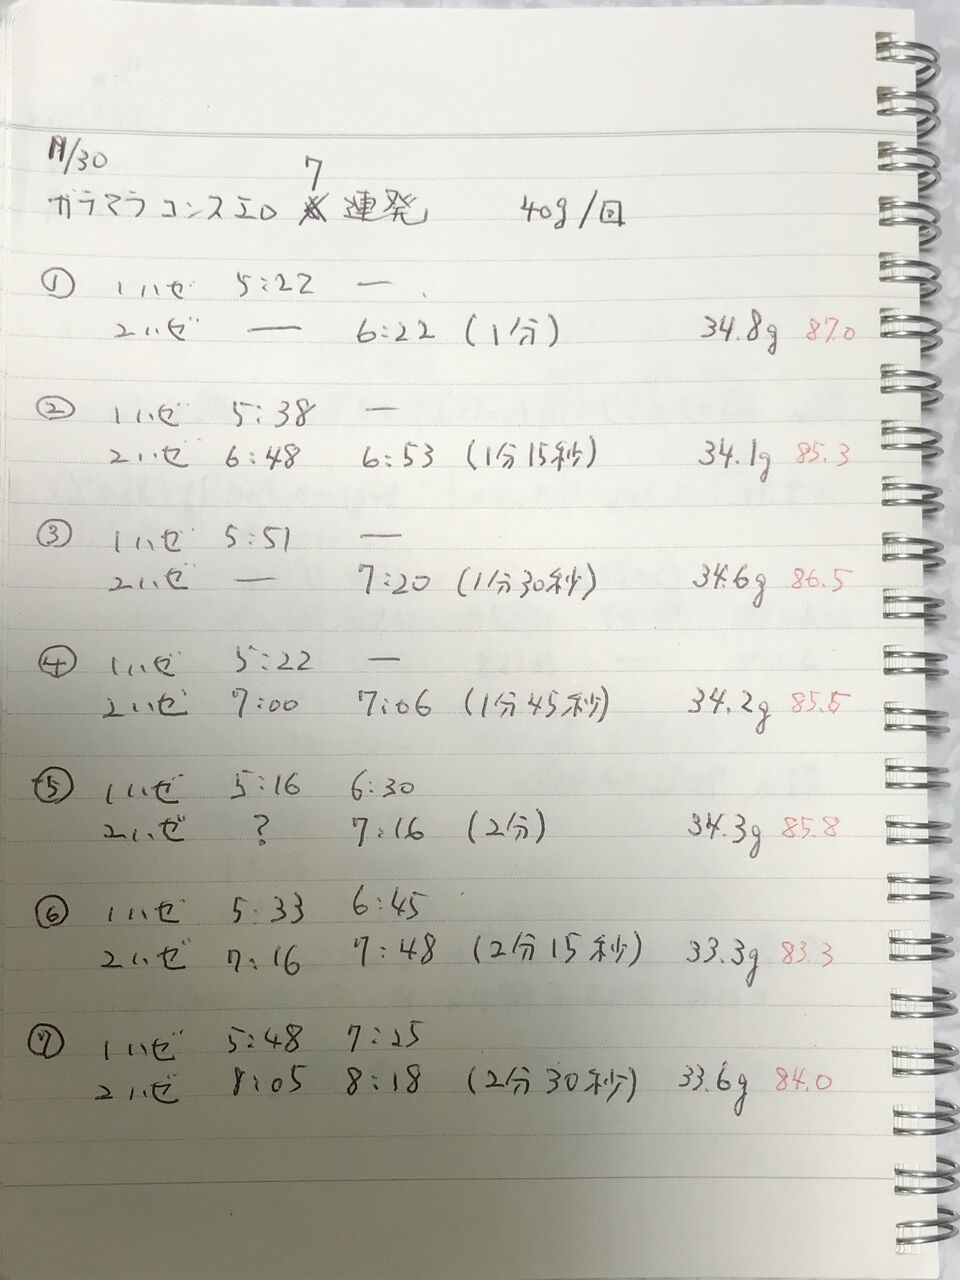 11/30
7
ガラマラコンスエロ 連発 40g/回
① 1ハゼ 5:22 ー
2ハゼ ー 6:22 (1分) 34.8g 87.0
② 1ハゼ 5:38 ー
2ハゼ 6:48 6:53 (1分15秒) 34.1g 85.3
③ 1ハゼ 5:51 ー
2ハゼ ー 7:20 (1分30秒) 34.6g 86.5
④ 1ハゼ 5:22 ー
2ハゼ 7:00 7:06 (1分45秒) 34.2g 85.5
⑤ 1ハゼ 5:16 6:30
2ハゼ ? 7:16 (2分) 34.3g 85.8
⑥ 1ハゼ 5:33 6:45
2ハゼ 7:16 7:48 (2分15秒) 33.3g 83.3
⑦ 1ハゼ 5:48 7:25
2ハゼ 8:05 8:18 (2分30秒) 33.6g 84.0